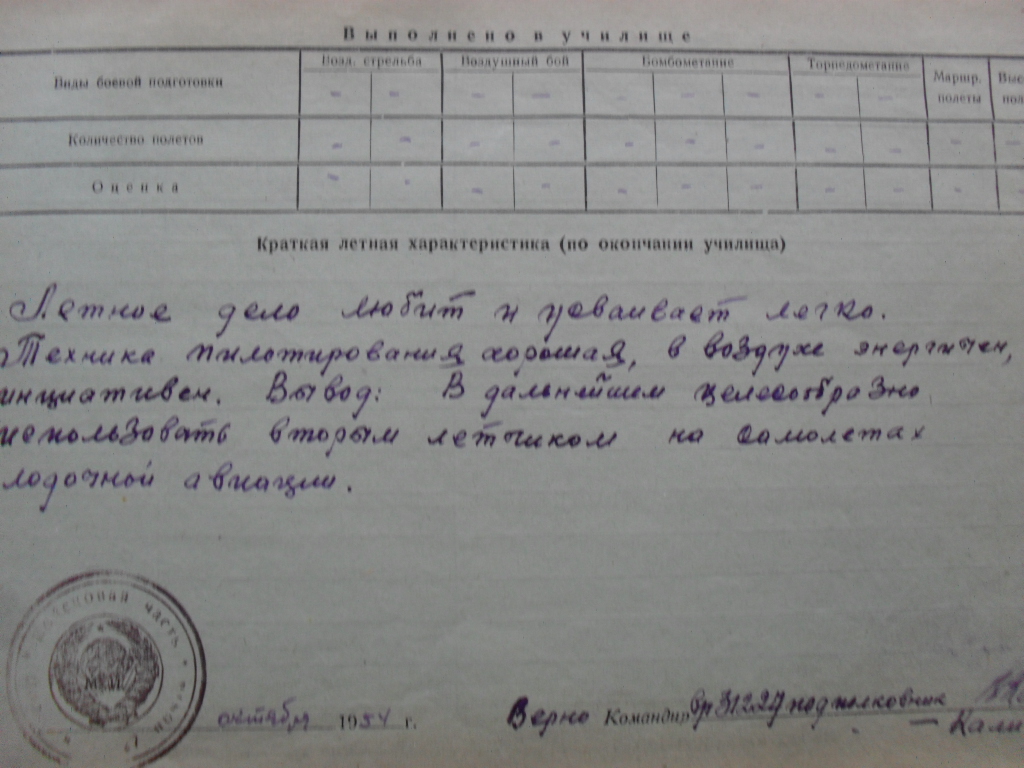 Выполнено в училище
Виды боевой подготовки
Возд. стрельба
Воздушный бой
Бомбометание
Торпедометание
Маршр. полеты
Выс
пол
Количество полетов
Оценка
Краткая летная характеристика (по окончании училища)
Летное дело любит и усваивает легко.
Техника пилотирования хорошая, в воздухе энергичен,
инициативен. Вывод: В дальнейшем целесообразно
использовать вторым летчиком на самолетах
лодочной авиации.
войсковая часть
октября 1954 г.
Верно Командир в/ч 31227 подполковник
Кали